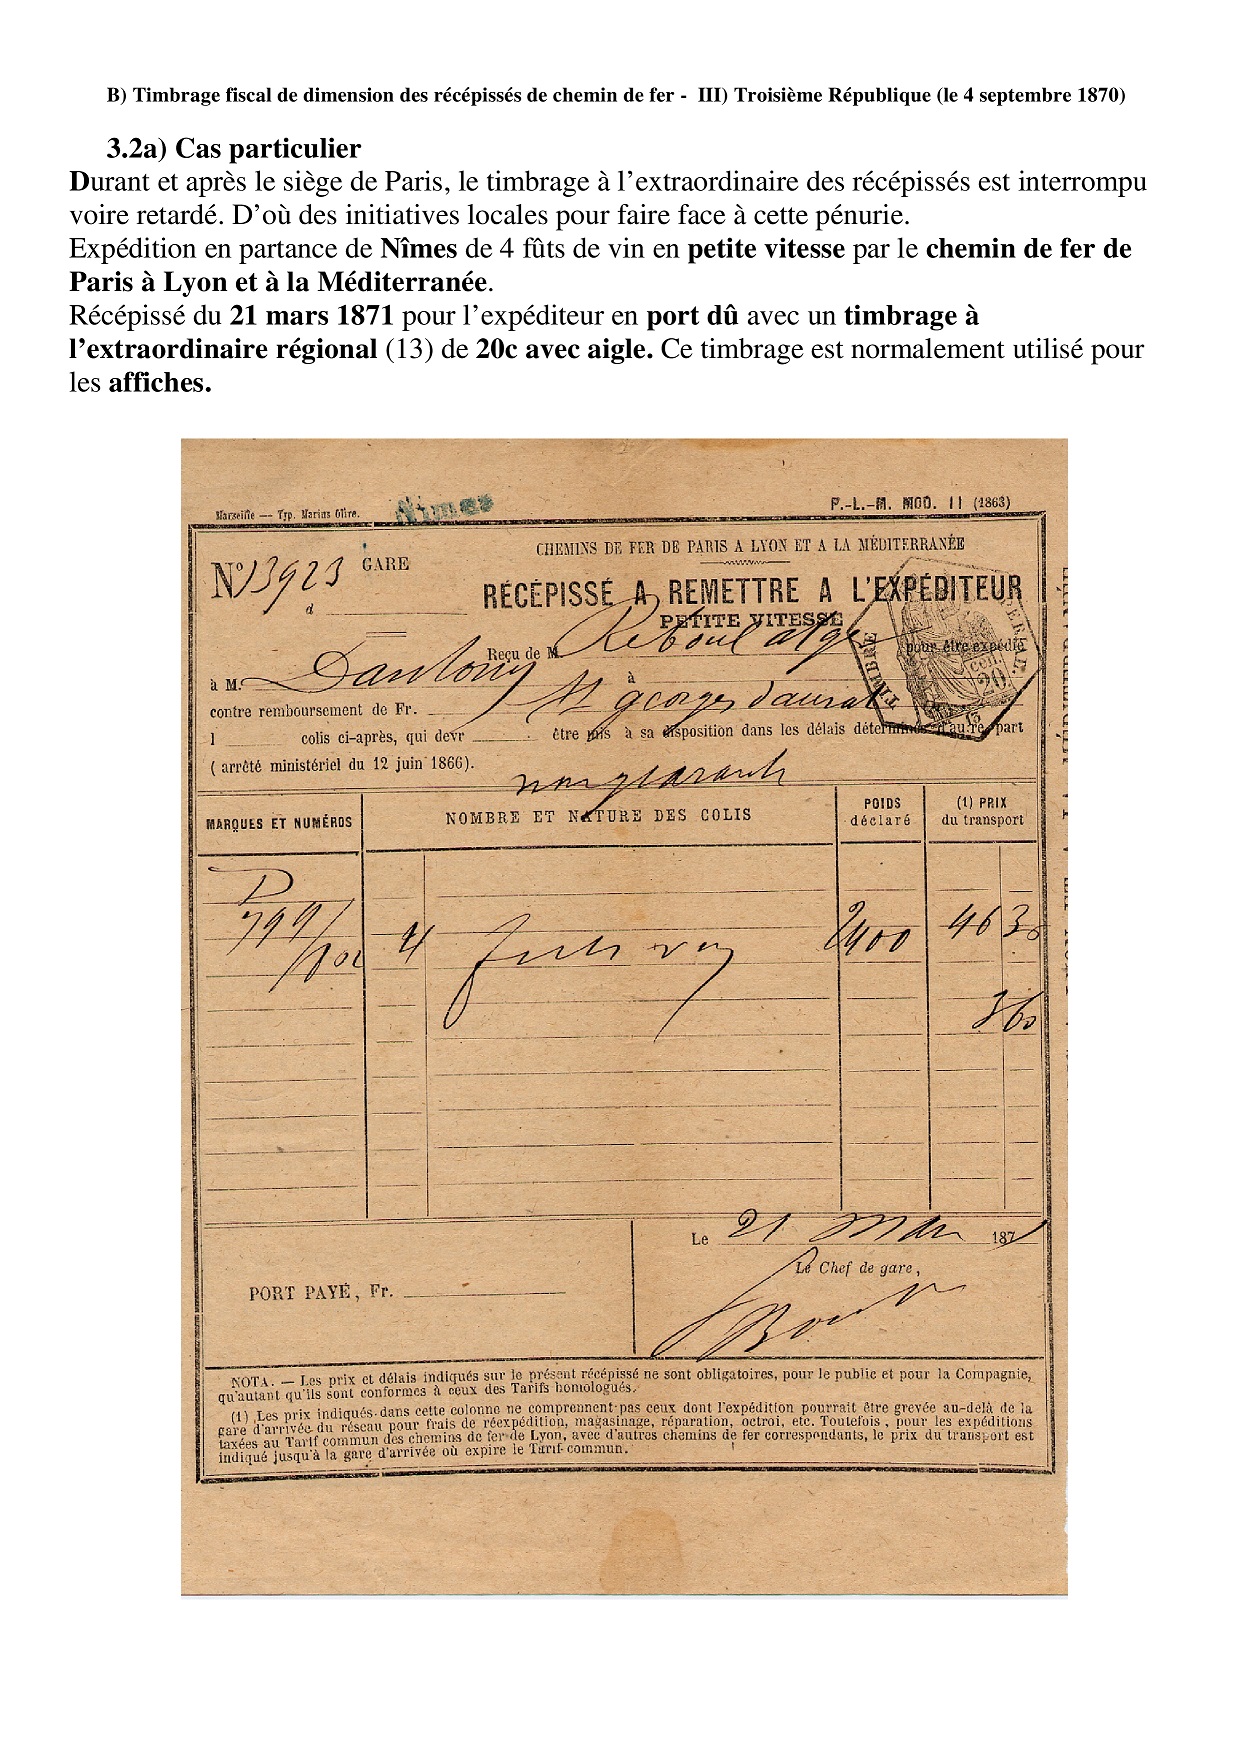 B) Timbrage fiscal de dimension des récépissés de chemin de fer - III) Troisième République (le 4 septembre 1870)
3.2a) Cas particulier
Durant et après le siège de Paris, le timbrage à l’extraordinaire des récépissés est interrompu
voire retardé. D’où des initiatives locales pour faire face à cette pénurie.
Expédition en partance de Nîmes de 4 fûts de vin en petite vitesse par le chemin de fer de
Paris à Lyon et à la Méditerranée.
Récépissé du 21 mars 1871 pour l’expéditeur en port dû avec un timbrage à
l’extraordinaire régional (13) de 20c avec aigle. Ce timbrage est normalement utilisé pour
les affiches.
Marseille — Typ. Marius Olive.
Nîmes
P.-L.-M. MOD. 11 (1863)
CHEMINS DE FER DE PARIS A LYON ET A LA MÉDITERRANÉE
No 13923 GARE
d
RÉCÉPISSÉ A REMETTRE A L'EXPÉDITEUR
PETITE VITESSE
TIMBRE
cen.
20
13
Reçu de M. Reboul pour être expédié
à M. à St georges d'aurac
contre remboursement de Fr.
1 colis ci-après, qui devr être mis à sa disposition dans les délais déterminés d'autre part
( arrêté ministériel du 12 juin 1866).
MARQUES ET NUMÉROS
NOMBRE ET NATURE DES COLIS
POIDS
déclaré
(1) PRIX
du transport
D
799/802 4 futs vin 2400 46 30
3 60
Le 21 mars 1871
Le Chef de gare,
PORT PAYÉ, Fr.
NOTA. — Les prix et délais indiqués sur le présent récépissé ne sont obligatoires, pour le public et pour la Compagnie,
qu'autant qu'ils sont conformes à ceux des Tarifs homologués.
(1) Les prix indiqués dans cette colonne ne comprennent pas ceux dont l'expédition pourrait être grevée au-delà de la
gare d'arrivée du réseau pour frais de réexpédition, magasinage, réparation, octroi, etc. Toutefois, pour les expéditions
taxées au Tarif commun des chemins de fer de Lyon, avec d'autres chemins de fer correspondants, le prix du transport est
indiqué jusqu'à la gare d'arrivée où expire le Tarif commun.